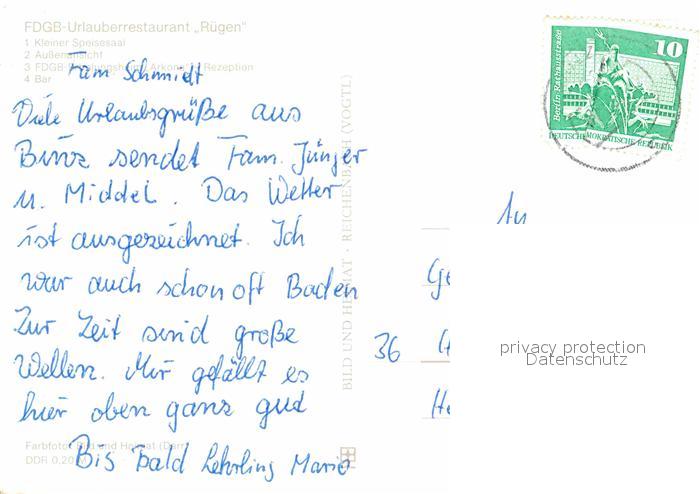 FDGB-Urlauberrestaurant „Rügen"
1 Kleiner Speisesaal
2 Außenansicht
4 Bar
Fam Schmidt
Viele Urlaubsgrüße aus
Binz sendet Fam. Jünger
u. Middel. Das Wetter
ist ausgezeichnet. Ich
war auch schon oft Baden
Zur Zeit sind große
Wellen. Mir gefällt es
hier oben ganz gut
Bis Bald Lehrling Mario
Farbfoto: Bild und Heimat
DDR 0,20
BILD UND HEIMAT · REICHENBACH (VOGTL)
10
Berlin, Rathausstraße
DEUTSCHE DEMOKRATISCHE REPUBLIK
An
Ge
36
He
privacy protection
Datenschutz